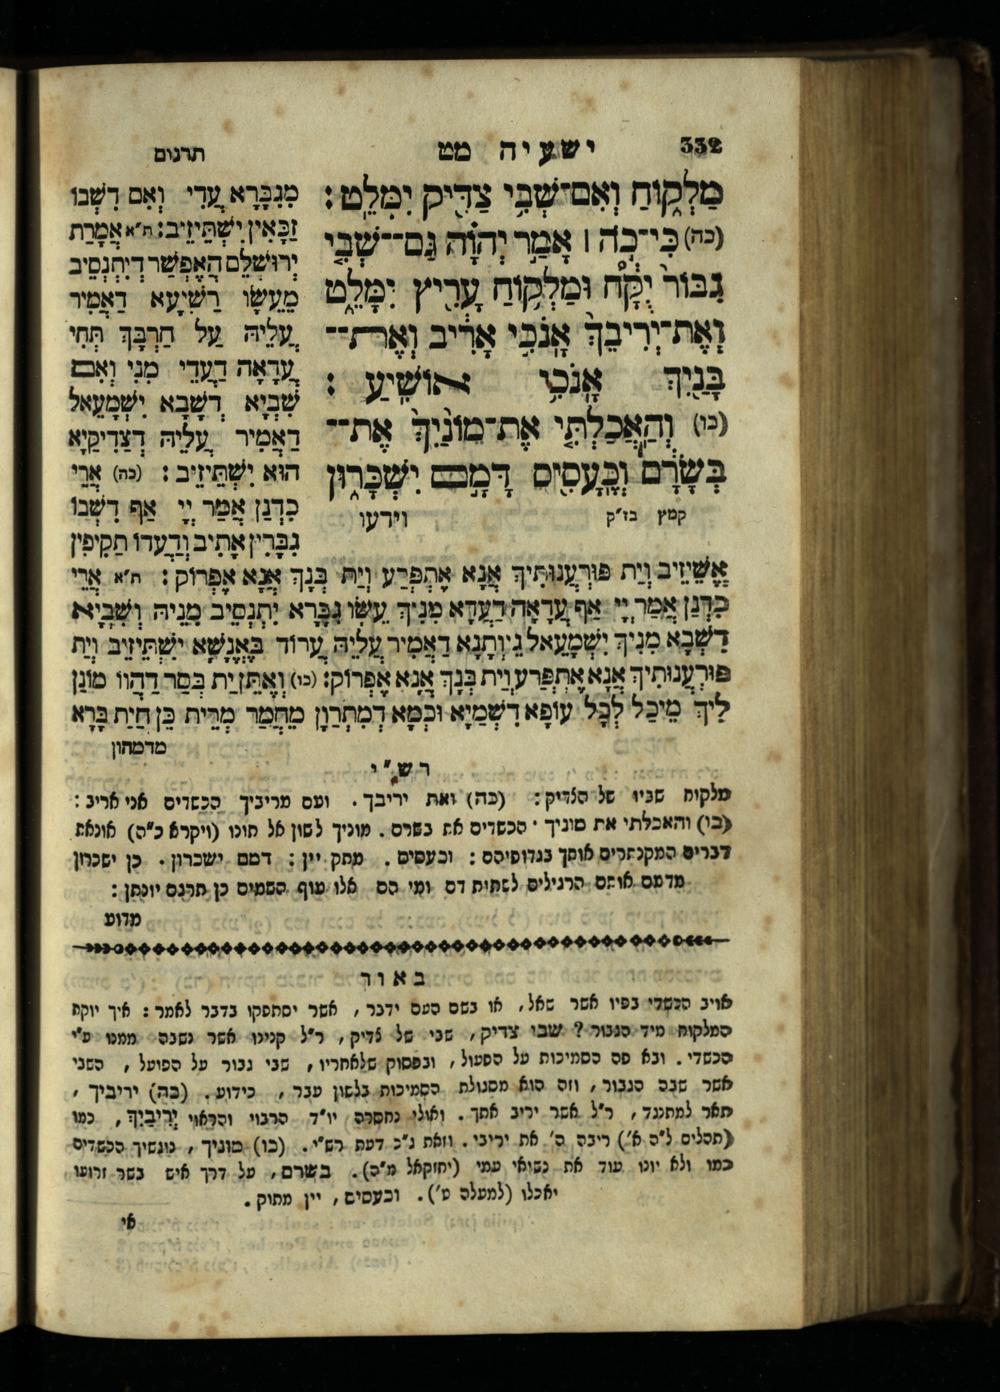 332
ישעיה מט
תרגום
מַלְק֑וֹחַ וְאִם־שְׁבִ֥י צַדִּ֖יק יִמָּלֵֽט׃
(כה) כִּי־כֹ֣ה ׀ אָמַ֣ר יְהֹוָ֗ה גַּם־־שְׁבִ֤י
גִבּוֹר֙ יֻקָּ֔ח וּמַלְק֥וֹחַ עָרִ֖יץ יִמָּלֵ֑ט
וְאֶת־יְרִיבֵךְ֙ אָנֹכִ֣י אָרִ֔יב וְאֶת־־
בָּנַ֖יִךְ אָנֹכִ֥י אוֹשִֽׁיעַ׃
(כו) וְהַאֲכַלְתִּ֤י אֶת־מוֹנַ֙יִךְ֙ אֶת־־
בְּשָׂרָ֔ם וְכֶעָסִ֖יס דָּמָ֣ם יִשְׁכָּר֑וּן
קמץ בז״ק
וידעו
מִגִבָּרָא עֲדִי וְאִם דִשְׁבוֹ
זַכָּאִין יִשְׁתֵּיזֵיב׃ ת״א אֲמָרַת
יְרוּשְׁלֵם הָאֶפְשַׁר דְיִתְנְסִיב
מֵעֵשָׂו רַשִׁיעָא דַאֲמִיר
עֲלֵיהּ עַל חַרְבָּךְ תְּחִי
עֲדָאָה דַעֲדֵי מִנִי וְאִם
שִׁבְיָא דְשָׁבָא יִשְׁמָעֵאל
דַאֲמִיר עֲלֵיהּ דְצַדִיקַיָא
הוּא יִשְׁתֵּיזֵיב׃ (כה) אֲרֵי
כִדְנַן אֲמַר יְיָ אַף דִשְׁבוֹ
גִבָּרִין אָתִיב וְדַעֲדוֹ תַקִיפִין
אֲשֵׁיזֵיב וְיַת פּוּרְעֲנוּתִיךְ אֲנָא אֶתְפְּרַע וְיַת בְּנָךְ אֲנָא אֶפְרוֹק׃ ת״א אֲרֵי
כִדְנַן אֲמַר יְיָ אַף עֲדָאָה דַעֲדָא מִנִיךְ עֵשָׂו גִבָּרָא יִתְנְסִיב מִנֵיהּ וְשִׁבְיָא
דִשְׁבָא מִנִיךְ יִשְׁמָעֵאל גֵיוְתָנָא דַאֲמִיר עֲלֵיהּ עֲרוֹד בַּאֲנָשָׁא יִשְׁתֵּיזֵיב וְיַת
פּוּרְעֲנוּתִיךְ אֲנָא אֶתְפְּרַע וְיַת בְּנָךְ אֲנָא אֶפְרוֹק׃ (כו) וְאֶתֵּן יַת בְּסַר דַהֲווֹ מוֹנַן
לִיךְ מֵיכַל לְכָל עוֹפָא דִשְׁמַיָא וּכְמָא דְמִתְרַוָן מֵחֲמַר מְרִית כֵּן חֵיַת בָּרָא
מדמהון
רש״י
מלקוח שביו של הצדיק׃ (כה) ואת יריבך. ועם מריביך הכשדים אני אריב׃
(כו) והאכלתי את מוניך. הכשדים את בשרם. מוניך לשון אל תונו (ויקרא כ״ה) אונאת
דברים המקנתרים אותך בגדופיהם׃ וכעסיס. מתק יין׃ דמם ישכרון. כן ישכרון
מדמם אותם הרגילים לשתות דם ומי הם אלו עוף השמים כן תרגם יונתן׃
מדוע
באור
אויב הכשדי בפיו אשר שאל, או בשם העם ידבר, אשר יסתפקו בדבר לאמר׃ איך יוקח
המלקוח מיד הגבור? שבי צדיק, שבי של צדיק, ר״ל קנינו אשר נשבה ממנו ע״י
הכשדי. ובא פה הסמיכות על הפעול, ובפסוק שלאחריו, שבי גבור על הפועל, השבי
אשר שבה הגבור, וזה הוא מסגולת הסמיכות בלשון עבר, כידוע. (כה) יריביך,
תאר למתנגד, ר״ל אשר יריב אתך. ואולי נחסרה יו״ד הרבוי והראוי יְרִיבַיִךְ, כמו
(תהלים ל״ה א׳) ריבה ה׳ את יריבי. וזאת ג״כ דעת רש״י. (כו) מוניך, נוגשיך הכשדיס
כמו ולא יונו עוד את נשיאי עמי (יחזקאל מ״ה). בשרם, על דרך איש בשר זרועו
יאכלו (למעלה ט׳). וכעסיס, יין מתוק.
אי